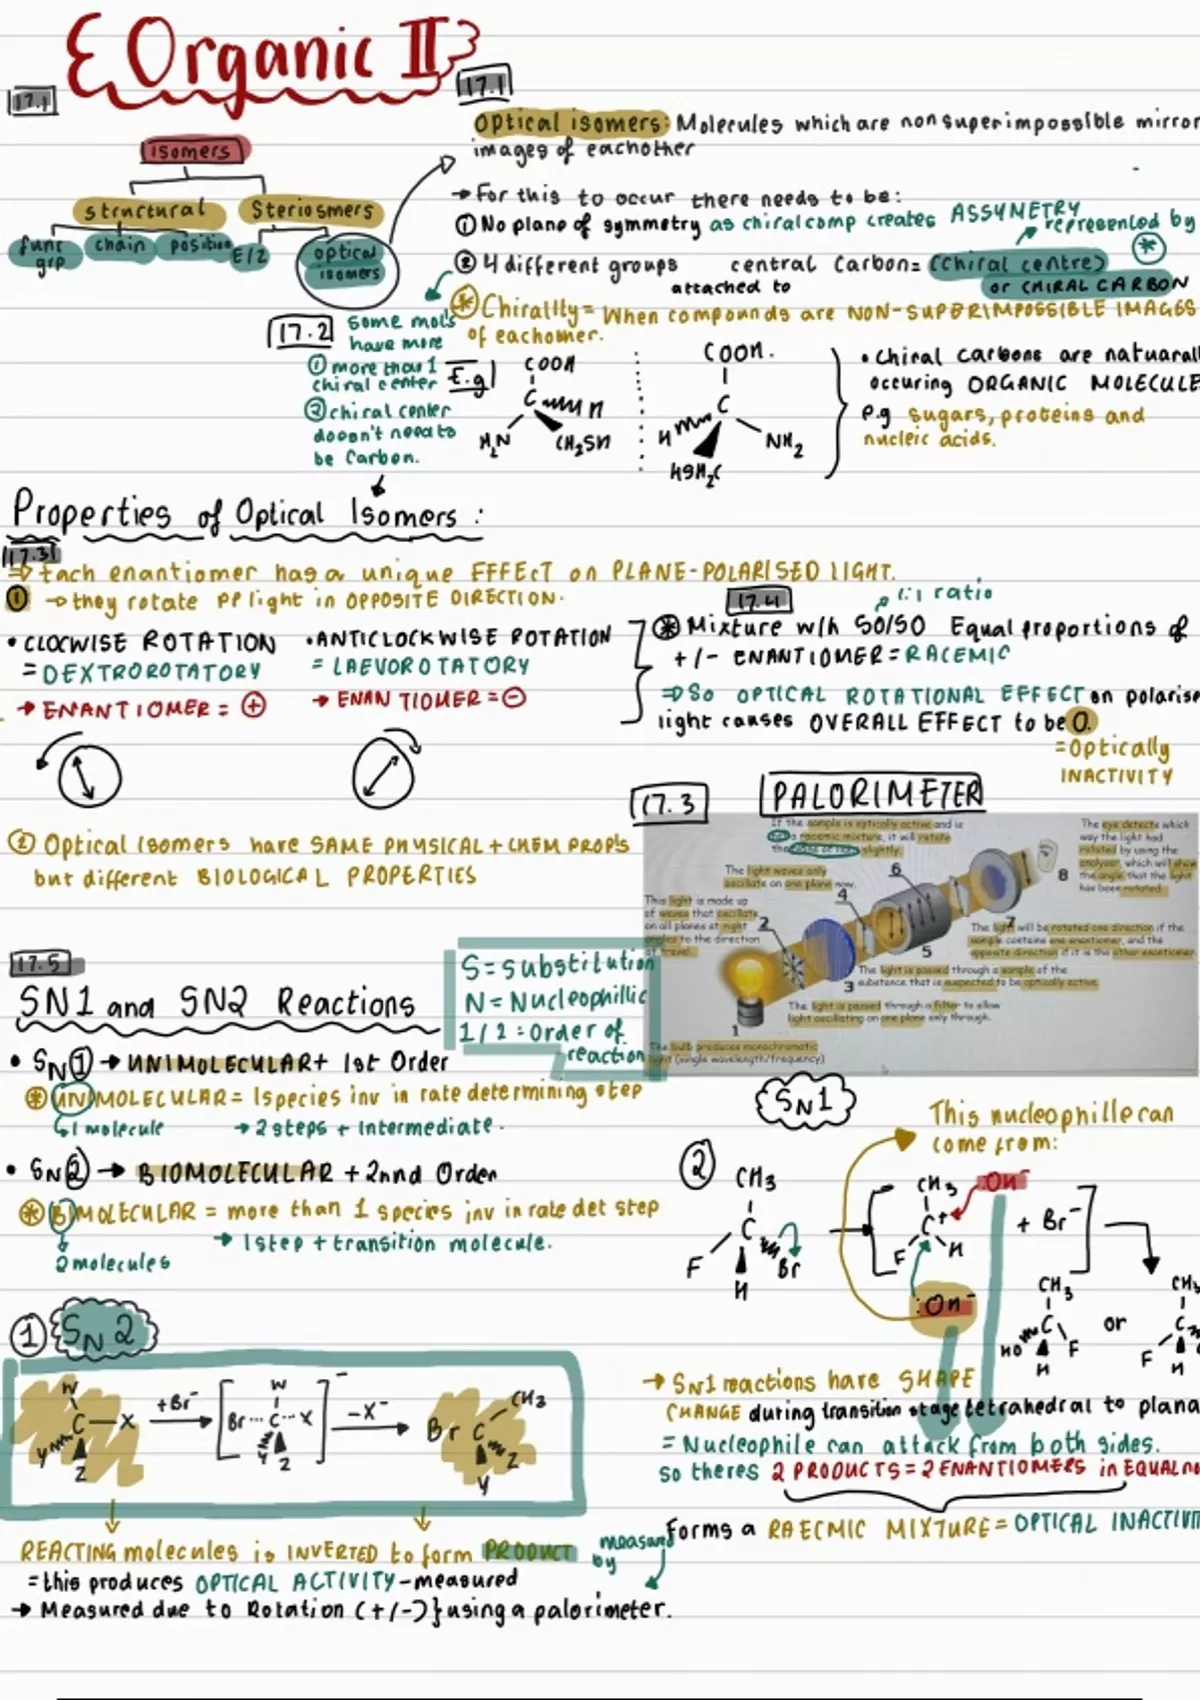 Organic II
17.1
isomers
structural
Steriosmers
func grp
chain
position
E/Z
optical isomers
17.1
Optical isomers: Molecules which are nonsuperimpossible mirror
images of eachother
→ For this to occur there needs to be:
① No plane of symmetry as chiral comp creates ASSYMETRY
represented by *
② 4 different groups attached to central Carbon = (chiral centre)
or CHIRAL CARBON
* Chirality = When compounds are NON-SUPERIMPOSSIBLE IMAGES
of eachother.
17.2
some mol's
have more
① more than 1
chiral center
② chiral center
doesn't need to
be Carbon.
E.g
COOH
C
H
H₂N
CH₂SH
COOH.
C
H
NH₂
HSH₂C
• Chiral Carbons are natuarall
occuring ORGANIC MOLECULE
e.g sugars, proteins and
nucleic acids.
Properties of Optical Isomers :
17.3
⇒ Each enantiomer has a unique EFFECT on PLANE-POLARISED LIGHT.
① → they rotate PP light in OPPOSITE DIRECTION.
• CLOCWISE ROTATION
= DEXTROROTATORY
→ ENANTIOMER = +
• ANTICLOCKWISE ROTATION
= LAEVOROTATORY
→ ENANTIOMER = −
17.4
1:1 ratio
* Mixture w/h 50/50 Equal proportions of
+/- ENANTIOMER = RACEMIC
⇒ So OPTICAL ROTATIONAL EFFECT on polaris
light causes OVERALL EFFECT to be 0.
= Optically
INACTIVITY
② Optical isomers have SAME PHYSICAL + CHEM PROPS
but different BIOLOGICAL PROPERTIES
17.3
PALORIMETER
If the sample is optically active and is
a racemic mixture, it will rotate
the slightly.
The light waves only
oscillate on one plane now.
This light is made up
of waves that oscillate
on all planes at right
angles to the direction
of travel.
The eye detects which
way the light had
rotated by using the
analyser, which will show
the angle that the light
has been rotated.
1
2
3
4
5
6
7
8
The light will be rotated one direction if the
sample contains one enantiomer, and the
opposite direction if it is the other enantiomer.
The light is passed through a sample of the
substance that is suspected to be optically active.
The light is passed through a filter to allow
light oscillating on one plane only through.
The bulb produces monochromatic
light (single wavelength/frequency)
17.5
SN1 and SN2 Reactions
S = substitution
N = Nucleophillic
1/2 = Order of
reaction
• SN1 → UNIMOLECULAR + 1st Order
* UNIMOLECULAR = 1 species inv in rate determining step
↳ 1 molecule → 2 steps + intermediate.
• SN2 → BIOMOLECULAR + 2nnd Order
* BIMOLECULAR = more than 1 species inv in rate det step
2 molecules → 1 step + transition molecule.
① SN2
W
C — X
Y
Z
+Br⁻
W
Br ··· C ··· X
Y
Z
−
−X⁻
Br
C
CH₃
Z
Y
REACTING molecules is INVERTED to form PRODUCT
= this produces OPTICAL ACTIVITY - measured
measured by
→ Measured due to Rotation (+/-) } using a palorimeter.
SN1
This nucleophille can
come from:
②
CH₃
C
F
H
Br
CH₃
C⁺
F
H
:OH⁻
:OH⁻
+ Br⁻
CH₃
C
HO
F
H
or
CH₃
C
F
H
→ SN1 reactions have SHAPE
CHANGE during transition stage tetrahedral to plana
= Nucleophile can attack from both sides.
so theres 2 PRODUCTS = 2 ENANTIOMERS in EQUAL
Forms a RAECMIC MIXTURE = OPTICAL INACTIVIT